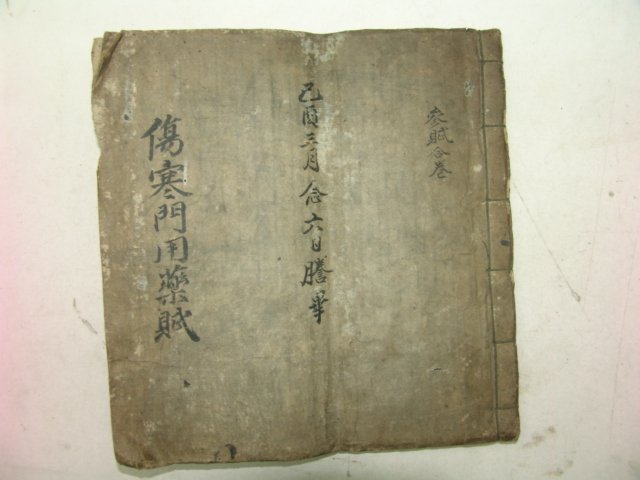 參賦合卷
己酉三月念六日謄畢
傷寒門用藥賦